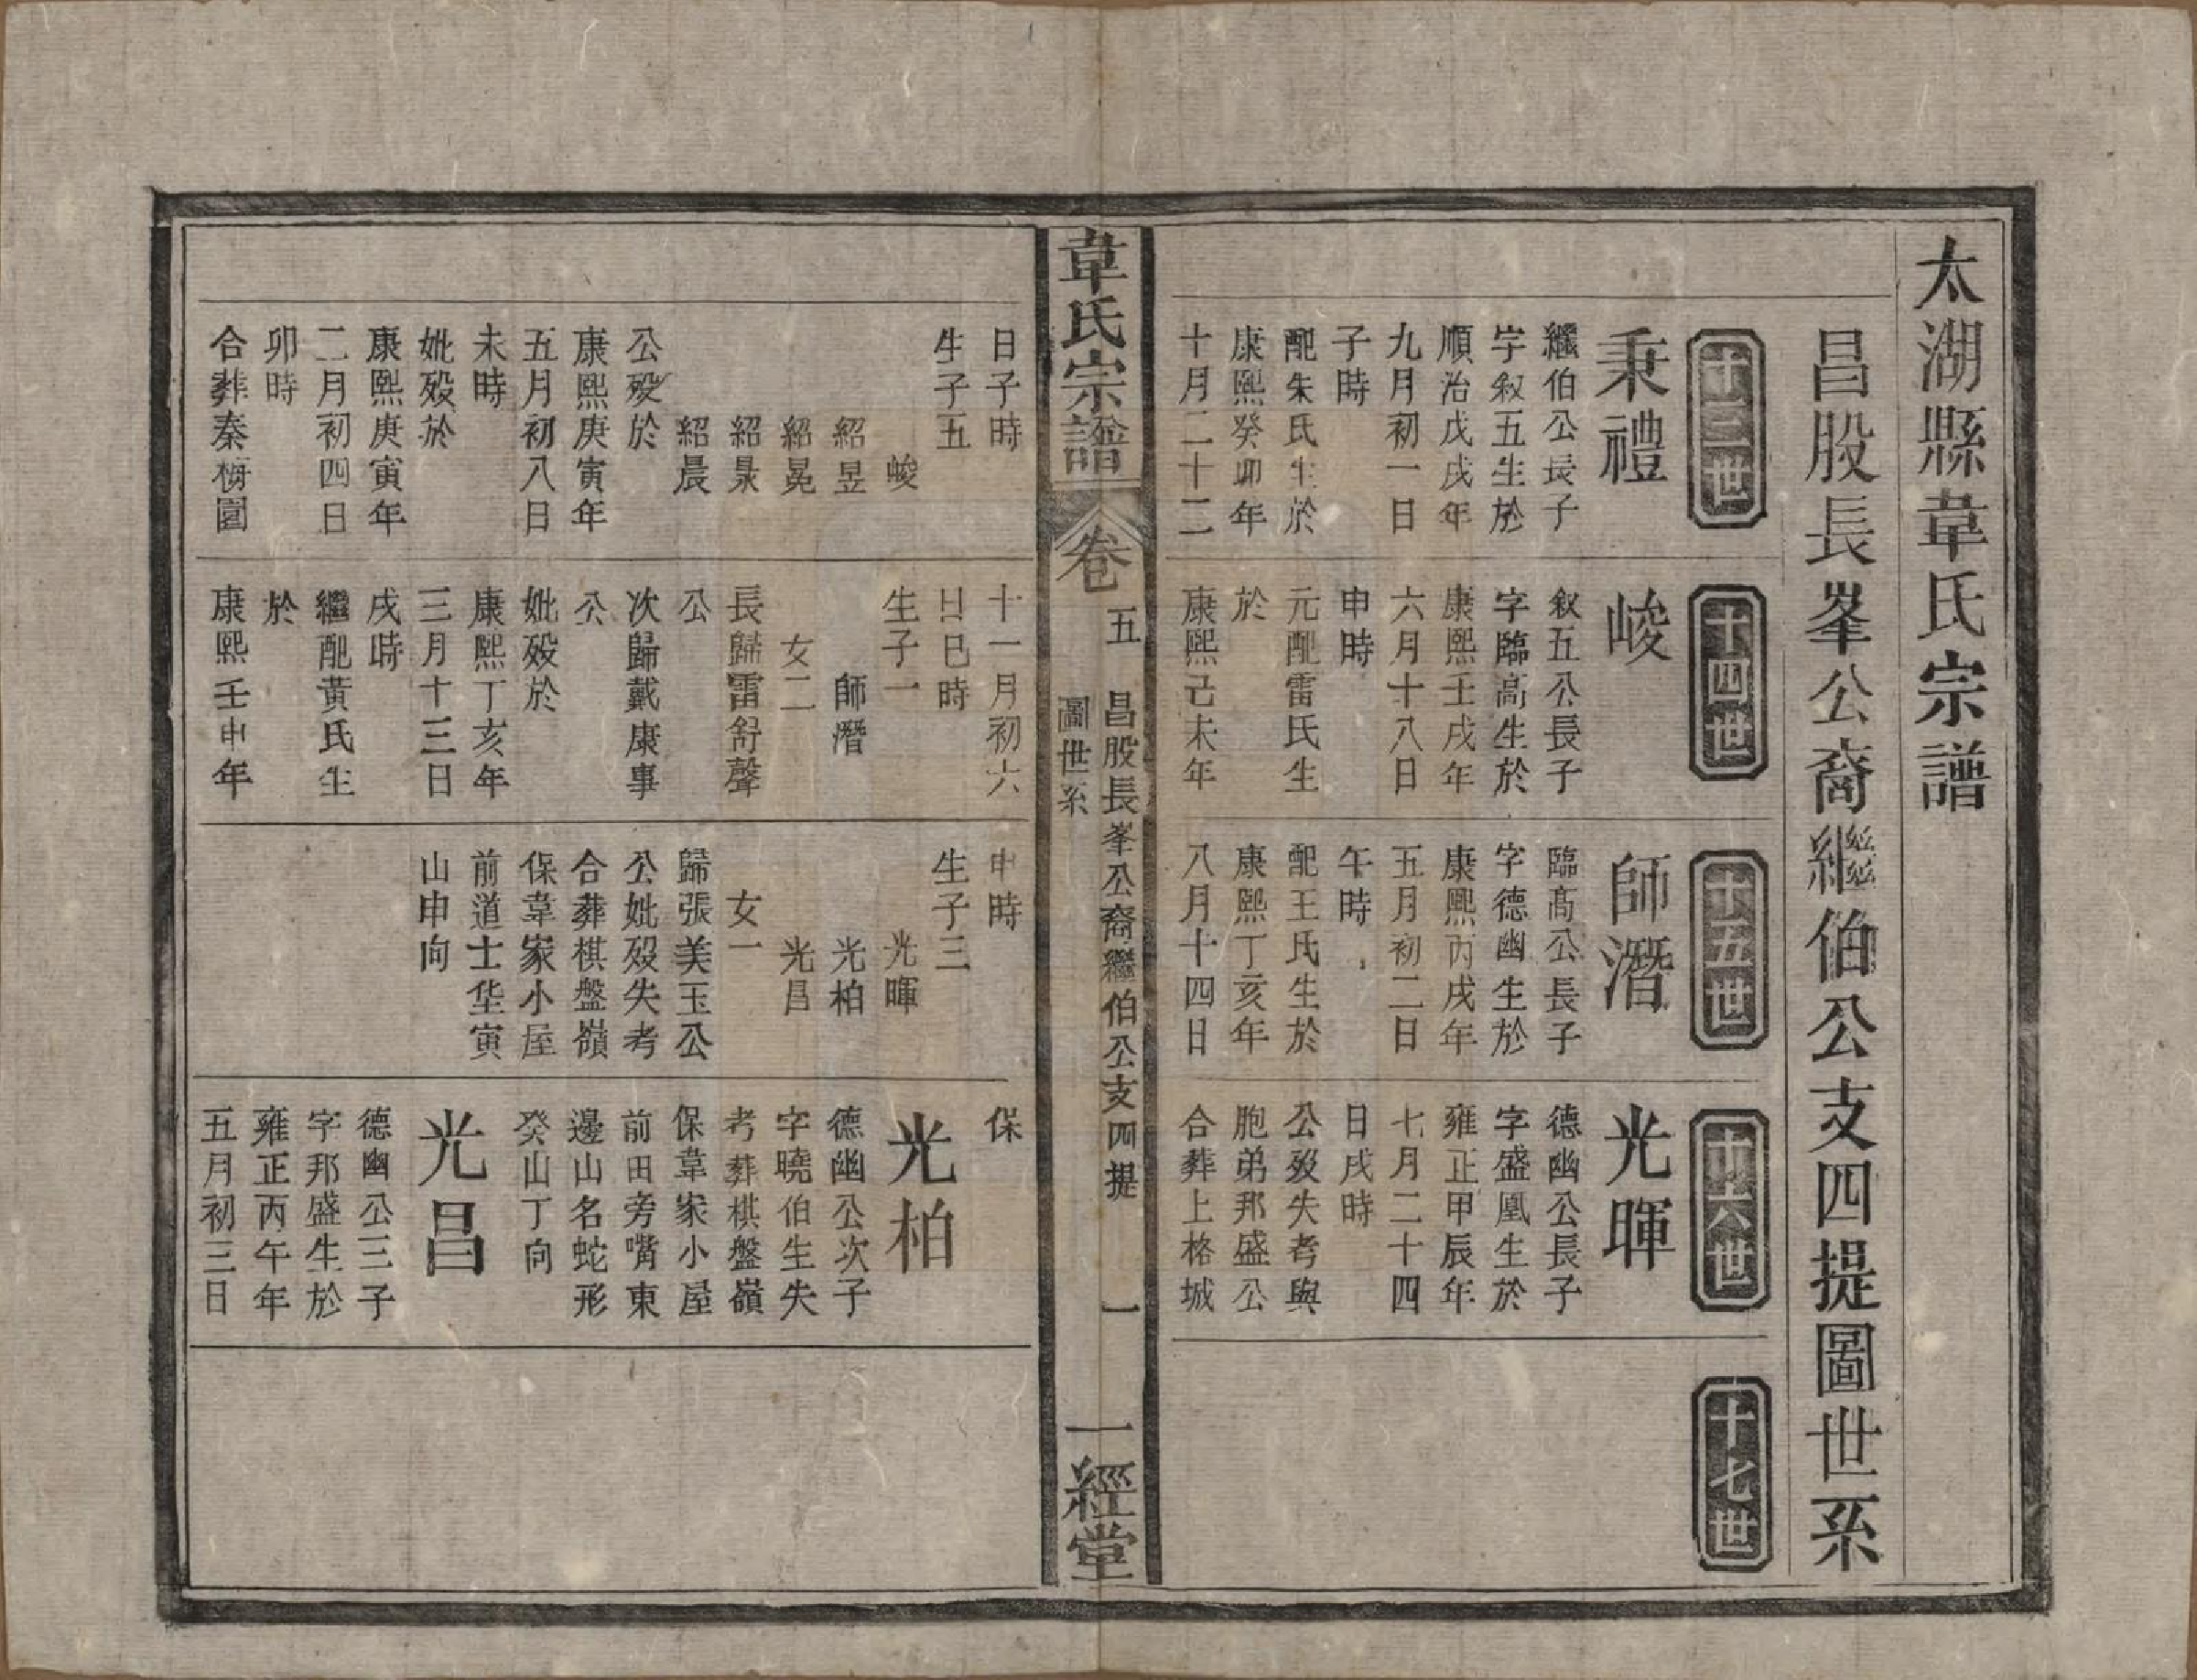 太湖縣韋氏宗譜
昌股長峯公裔繼伯公支四提圖世系
十三世
秉禮
繼伯公長子
字叙五生於
順治戊戌年
九月初一日
子時
配朱氏生於
康熙癸卯年
十月二十二
十四世
峻
叙五公長子
字臨高生於
康熙壬戌年
六月十八日
申時
元配雷氏生
於
康熙己未年
十五世
師潛
臨髙公長子
字德幽生於
康熙丙戌年
五月初二日
午時
配王氏生於
康熙丁亥年
八月十四日
十六世
光暉
德幽公長子
字盛凰生於
雍正甲辰年
七月二十四
日戌時
公歿失考與
胞弟邦盛公
合葬上格城
十七世
韋氏宗譜
卷五
昌股長峯公裔繼伯公支四提
圖世系
一
一經堂
日子時
生子五
峻
紹昱
紹晃
紹晸
紹晨
公歿於
康熙庚寅年
五月初八日
未時
妣歿於
康熙庚寅年
二月初四日
卯時
合葬秦梅園
十一月初六
日巳時
生子一
師潛
女二
長歸雷舒聲
公
次歸戴康事
公
妣歿於
康熙丁亥年
三月十三日
戌時
繼配黃氏生
於
康熙壬申年
申時
生子三
光暉
光柏
光昌
女一
歸張美玉公
公妣歿失考
合葬棋盤嶺
保韋家小屋
前道士垈寅
山申向
保
光柏
德幽公次子
字曉伯生失
考葬棋盤嶺
保韋家小屋
前田旁嘴東
邊山名蛇形
癸山丁向
光昌
德幽公三子
字邦盛生於
雍正丙午年
五月初三日